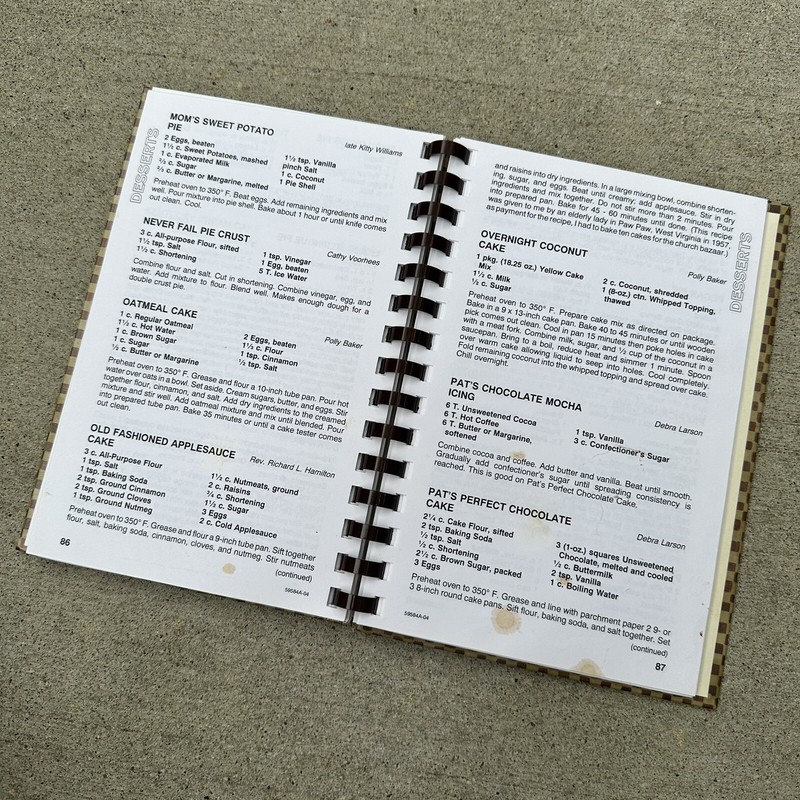 DESSERTS
MOM'S SWEET POTATO
PIE
late Kitty Williams
2 Eggs, beaten
1½ c. Sweet Potatoes, mashed
1 c. Evaporated Milk
⅔ c. Sugar
⅔ c. Butter or Margarine, melted
1½ tsp. Vanilla
pinch Salt
1 c. Coconut
1 Pie Shell
Preheat oven to 350° F. Beat eggs. Add remaining ingredients and mix
well. Pour mixture into pie shell. Bake about 1 hour or until knife comes
out clean. Cool.
NEVER FAIL PIE CRUST
Cathy Voorhees
3 c. All-purpose Flour, sifted
1½ tsp. Salt
1½ c. Shortening
1 tsp. Vinegar
1 Egg, beaten
5 T. Ice Water
Combine flour and salt. Cut in shortening. Combine vinegar, egg, and
water. Add mixture to flour. Blend well. Makes enough dough for a
double crust pie.
OATMEAL CAKE
Polly Baker
1 c. Regular Oatmeal
1½ c. Hot Water
1 c. Brown Sugar
1 c. Sugar
½ c. Butter or Margarine
2 Eggs, beaten
1½ c. Flour
1 tsp. Cinnamon
½ tsp. Salt
Preheat oven to 350° F. Grease and flour a 10-inch tube pan. Pour hot
water over oats in a bowl. Set aside. Cream sugars, butter, and eggs. Stir
together flour, cinnamon, and salt. Add dry ingredients to the creamed
mixture and stir well. Add oatmeal mixture and mix until blended. Pour
into prepared tube pan. Bake 35 minutes or until a cake tester comes
out clean.
OLD FASHIONED APPLESAUCE
CAKE
Rev. Richard L. Hamilton
3 c. All-Purpose Flour
1 tsp. Salt
1 tsp. Baking Soda
2 tsp. Ground Cinnamon
1 tsp. Ground Cloves
1 tsp. Ground Nutmeg
1½ c. Nutmeats, ground
2 c. Raisins
¾ c. Shortening
1½ c. Sugar
3 Eggs
2 c. Cold Applesauce
Preheat oven to 350° F. Grease and flour a 9-inch tube pan. Sift together
flour, salt, baking soda, cinnamon, cloves, and nutmeg. Stir nutmeats
(continued)
86
59584A-04
and raisins into dry ingredients. In a large mixing bowl, combine shorten-
ing, sugar, and eggs. Beat until creamy; add applesauce. Stir in dry
ingredients and mix together. Do not stir more than 2 minutes. Pour
into prepared pan. Bake for 45 - 60 minutes until done. (This recipe
was given to me by an elderly lady in Paw Paw, West Virginia in 1957,
as payment for the recipe, I had to bake ten cakes for the church bazaar.)
DESSERTS
OVERNIGHT COCONUT
CAKE
Polly Baker
1 pkg. (18.25 oz.) Yellow Cake
Mix
1½ c. Milk
½ c. Sugar
2 c. Coconut, shredded
1 (8-oz.) ctn. Whipped Topping,
thawed
Preheat oven to 350° F. Prepare cake mix as directed on package.
Bake in a 9 x 13-inch cake pan. Bake 40 to 45 minutes or until wooden
pick comes out clean. Cool in pan 15 minutes then poke holes in cake
with a meat fork. Combine milk, sugar, and ½ cup of the coconut in a
saucepan. Bring to a boil, reduce heat and simmer 1 minute. Spoon
over warm cake allowing liquid to seep into holes. Cool completely.
Fold remaining coconut into the whipped topping and spread over cake.
Chill overnight.
PAT'S CHOCOLATE MOCHA
ICING
Debra Larson
6 T. Unsweetened Cocoa
6 T. Hot Coffee
6 T. Butter or Margarine,
softened
1 tsp. Vanilla
3 c. Confectioner's Sugar
Combine cocoa and coffee. Add butter and vanilla. Beat until smooth.
Gradually add confectioner's sugar until spreading consistency is
reached. This is good on Pat's Perfect Chocolate Cake.
PAT'S PERFECT CHOCOLATE
CAKE
Debra Larson
2¼ c. Cake Flour, sifted
2 tsp. Baking Soda
½ tsp. Salt
½ c. Shortening
2½ c. Brown Sugar, packed
3 Eggs
3 (1-oz.) squares Unsweetened
Chocolate, melted and cooled
½ c. Buttermilk
2 tsp. Vanilla
1 c. Boiling Water
Preheat oven to 350° F. Grease and line with parchment paper 2 9- or
3 8-inch round cake pans. Sift flour, baking soda, and salt together. Set
(continued)
59584A-04
87